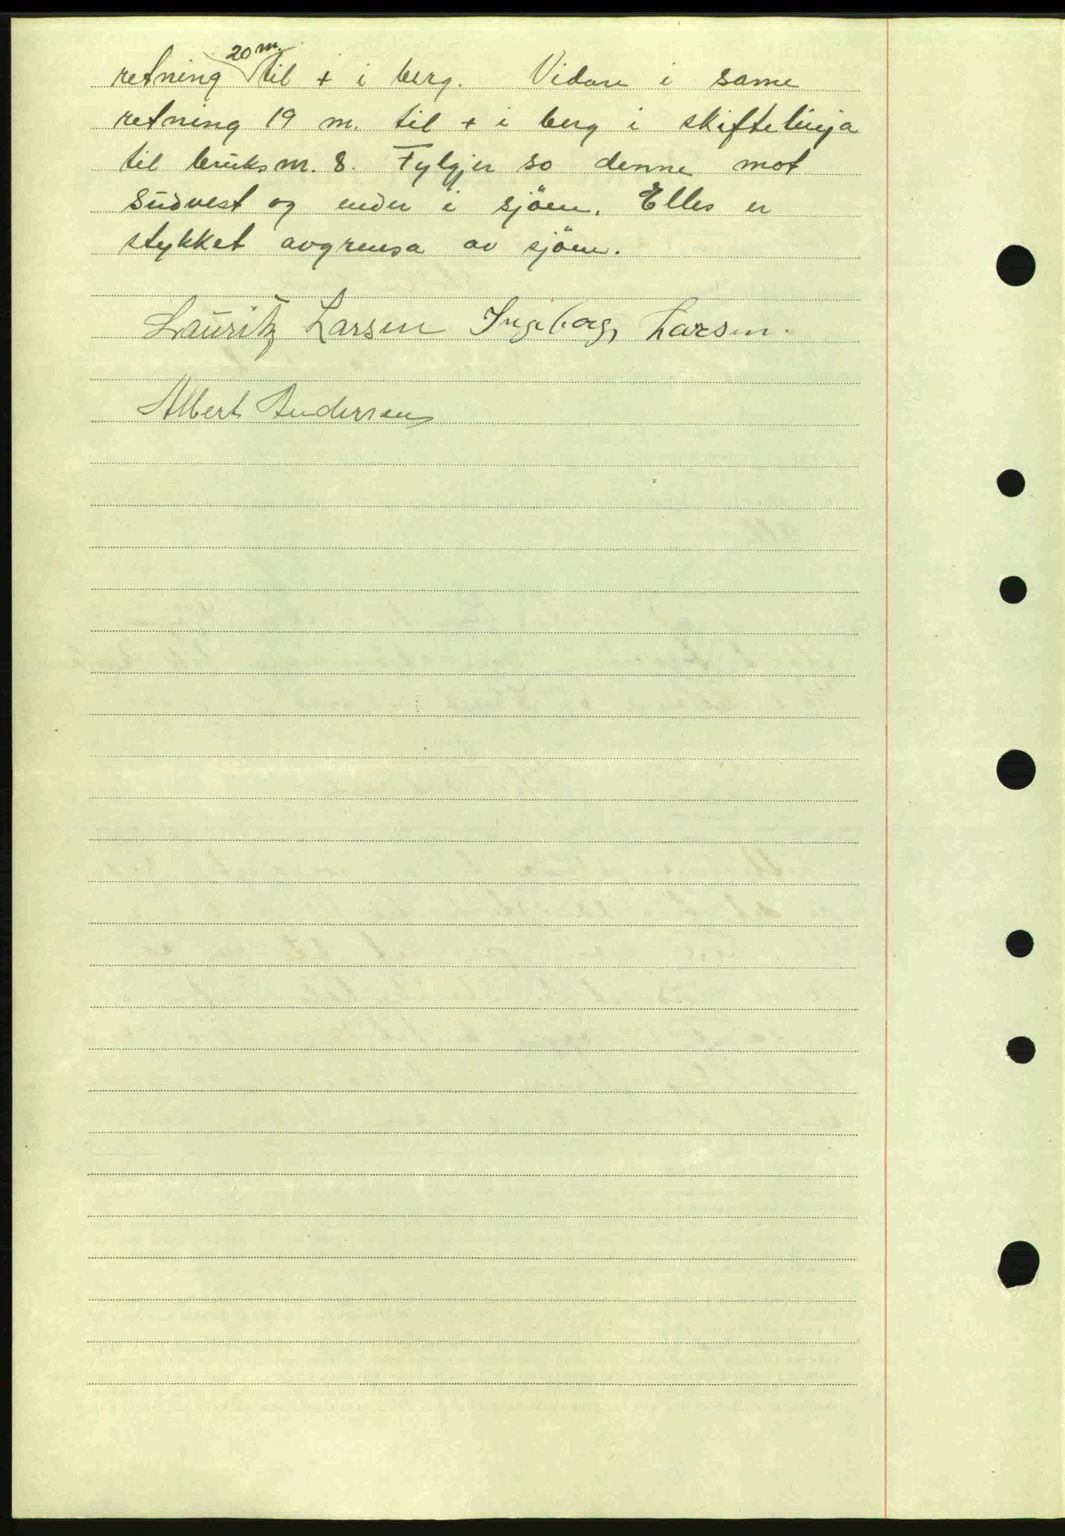 retning 20 m. til + i berg. Vidare i same
retning 19 m. til + i berg i skiftelinja
til bruksnr. 8. Fylgjer so denne mot
sudvest og ender i sjöen. Elles er
stykket avgrensa av sjöen.
Lauritz Larsen Ingeborg Larsen.
Albert Andersen